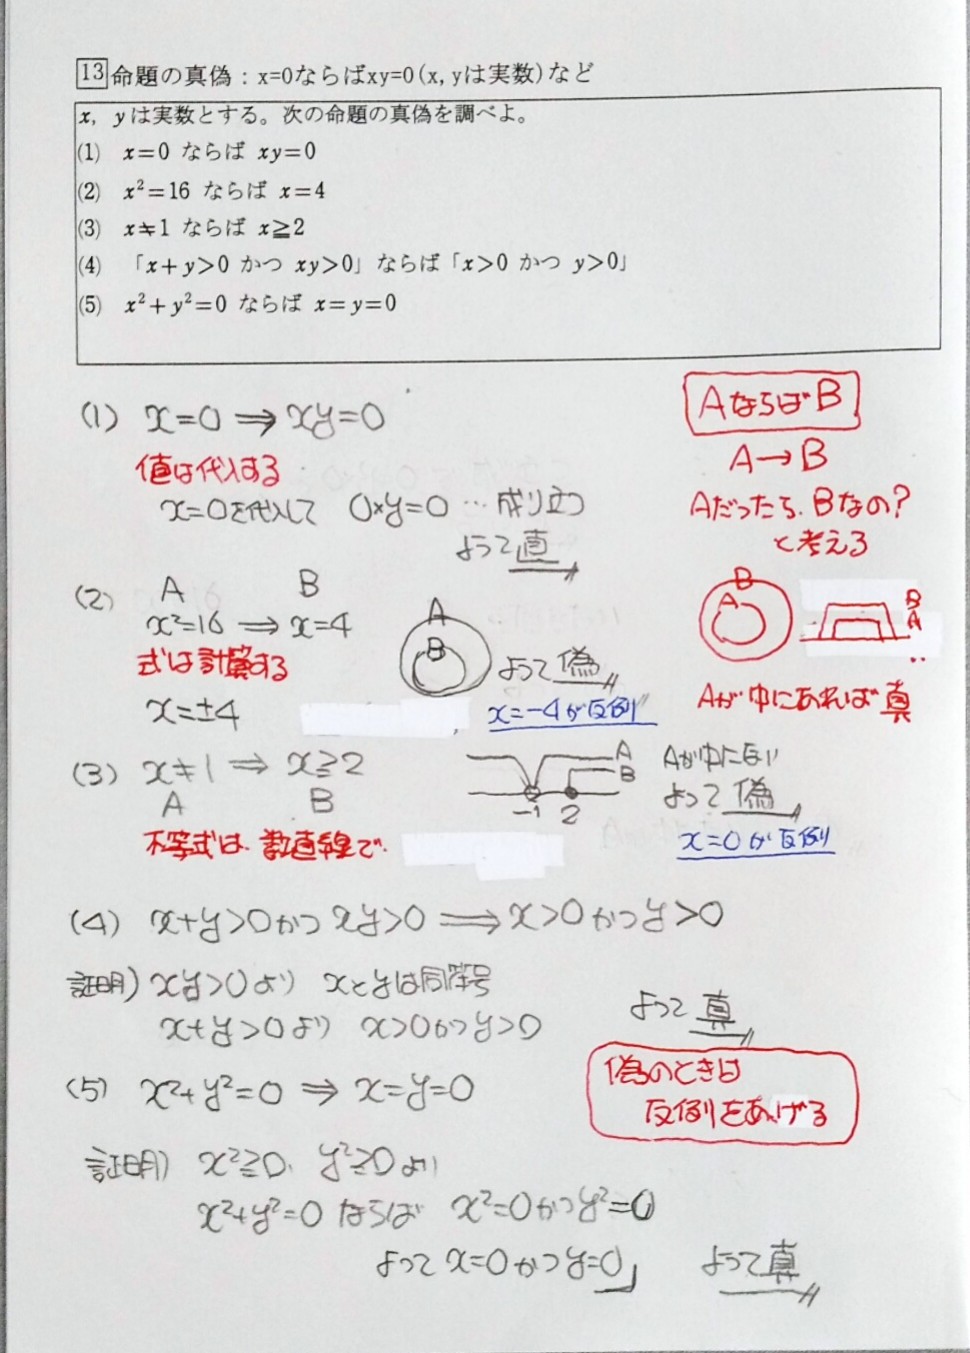 13 命題の真偽：x=0ならばxy=0(x,yは実数)など
x, yは実数とする。次の命題の真偽を調べよ。
(1) x=0 ならば xy=0
(2) x²=16 ならば x=4
(3) x≠1 ならば x≧2
(4) 「x+y>0 かつ xy>0」ならば「x>0 かつ y>0」
(5) x²+y²=0 ならば x=y=0
(1) x=0 ⇒ xy=0
値は代入する
x=0を代入して 0×y=0 … 成り立つ
よって真
AならばB
A→B
Aだったら、Bなの？
と考える
B
A
B
A
Aが中にあれば真
(2) A B
x²=16 ⇒ x=4
式は計算する
x=±4
A
B
よって偽
x=-4が反例
(3) x≠1 ⇒ x≧2
A B
不等式は、数直線で、
A
B
-1 2
Aが中にない
よって偽
x=0が反例
(4) x+y>0かつxy>0 ⇒ x>0かつy>0
証明) xy>0より xとyは同符号
x+y>0より x>0かつy>0
よって真
偽のときは
反例をあげる
(5) x²+y²=0 ⇒ x=y=0
証明) x²≧0、y²≧0より
x²+y²=0 ならば x²=0かつy²=0
よってx=0かつy=0」 よって真